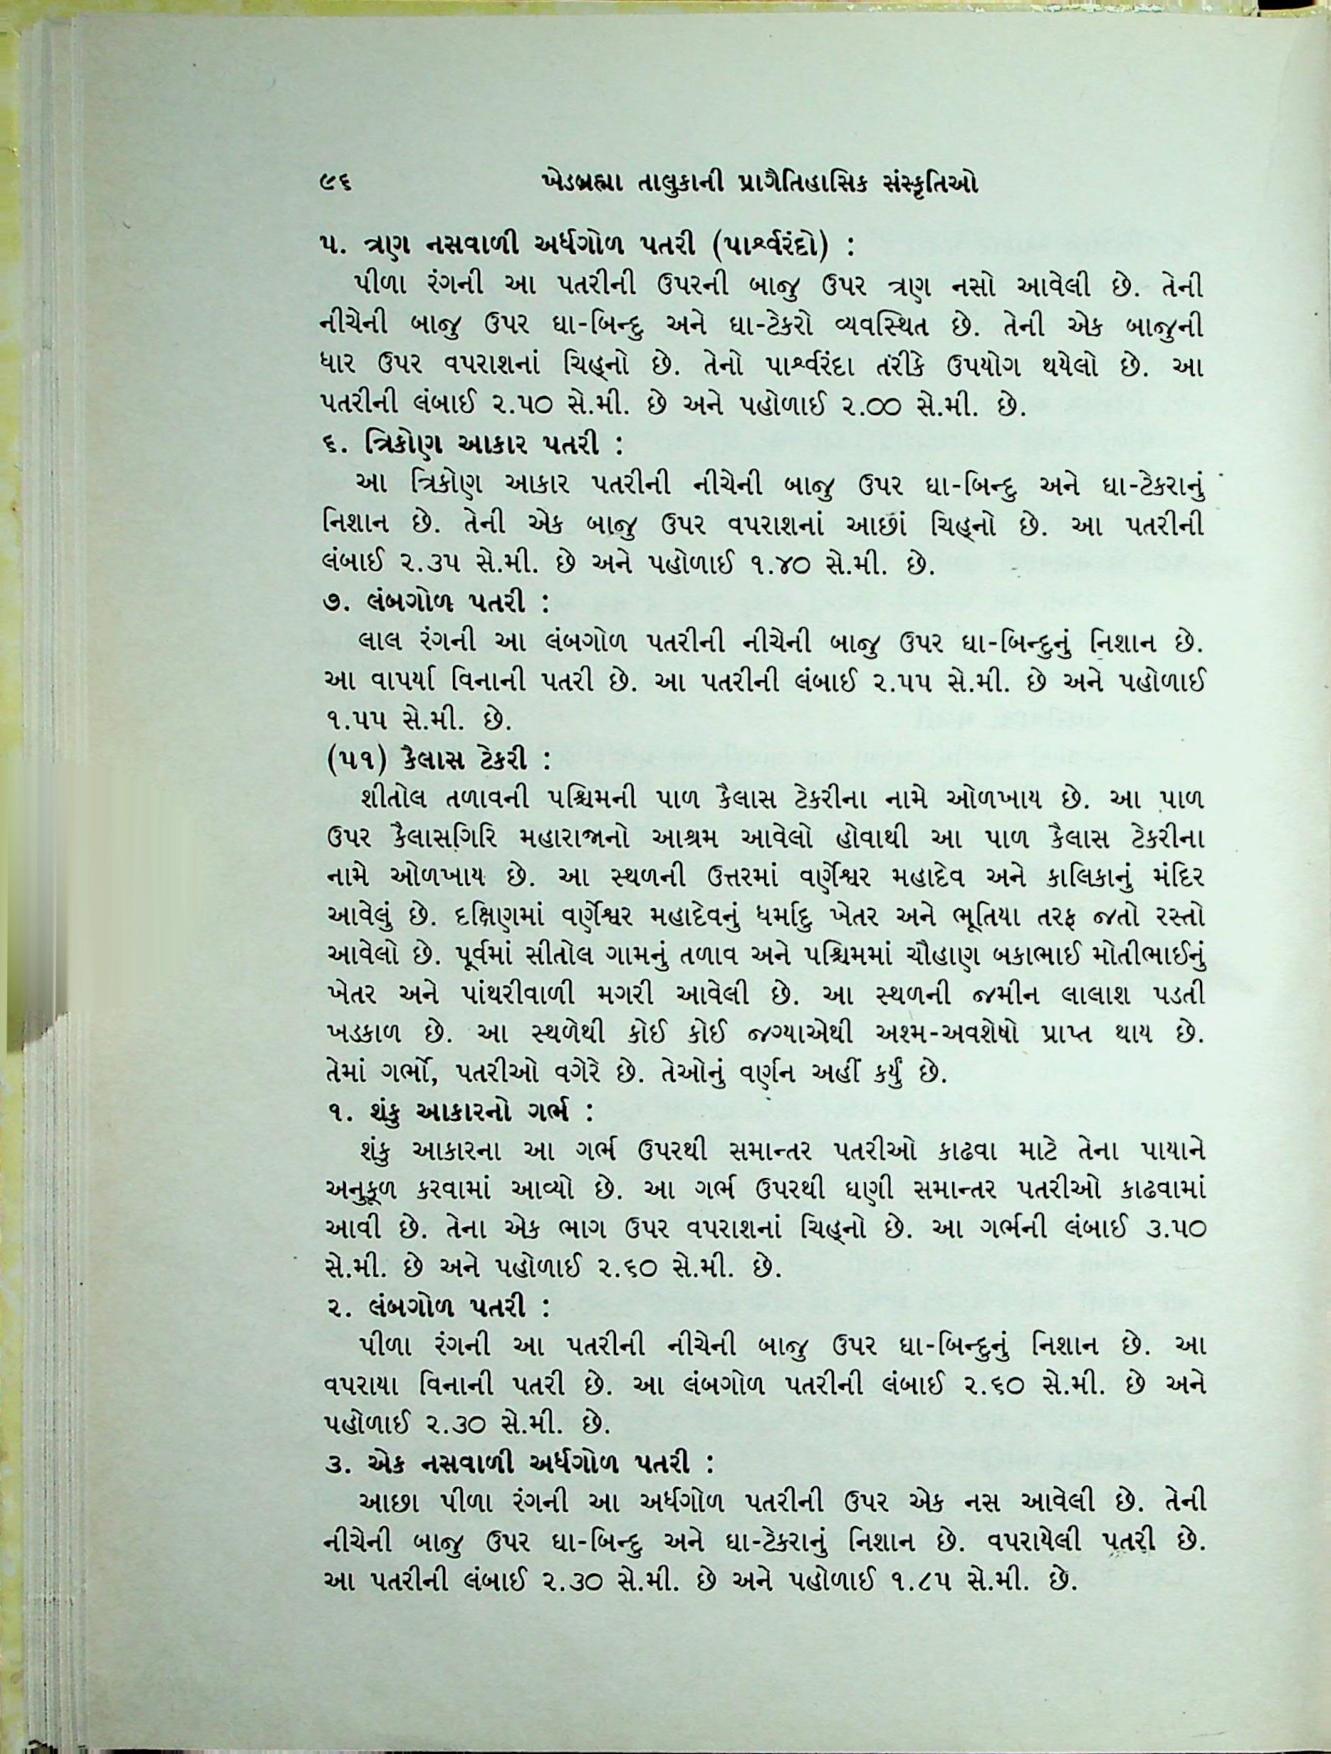 ૯૬ ખેડબ્રહ્મા તાલુકાની પ્રાગૈતિહાસિક સંસ્કૃતિઓ
૫. ત્રણ નસવાળી અર્ધગોળ પતરી (પાર્શ્વરંદો) :
પીળા રંગની આ પતરીની ઉપરની બાજુ ઉપર ત્રણ નસો આવેલી છે. તેની
નીચેની બાજુ ઉપર ઘા-બિન્દુ અને ઘા-ટેકરો વ્યવસ્થિત છે. તેની એક બાજુની
ધાર ઉપર વપરાશનાં ચિહ્નો છે. તેનો પાર્શ્વરંદા તરીકે ઉપયોગ થયેલો છે. આ
પતરીની લંબાઈ ૨.૫૦ સે.મી. છે અને પહોળાઈ ૨.૦૦ સે.મી. છે.
૬. ત્રિકોણ આકાર પતરી :
આ ત્રિકોણ આકાર પતરીની નીચેની બાજુ ઉપર ઘા-બિન્દુ અને ઘા-ટેકરાનું
નિશાન છે. તેની એક બાજુ ઉપર વપરાશનાં આછાં ચિહ્નો છે. આ પતરીની
લંબાઈ ૨.૩૫ સે.મી. છે અને પહોળાઈ ૧.૪૦ સે.મી. છે.
૭. લંબગોળ પતરી :
લાલ રંગની આ લંબગોળ પતરીની નીચેની બાજુ ઉપર ઘા-બિન્દુનું નિશાન છે.
આ વાપર્યા વિનાની પતરી છે. આ પતરીની લંબાઈ ૨.૫૫ સે.મી. છે અને પહોળાઈ
૧.૫૫ સે.મી. છે.
(૫૧) કૈલાસ ટેકરી :
શીતોલ તળાવની પશ્ચિમની પાળ કૈલાસ ટેકરીના નામે ઓળખાય છે. આ પાળ
ઉપર કૈલાસગિરિ મહારાજાનો આશ્રમ આવેલો હોવાથી આ પાળ કૈલાસ ટેકરીના
નામે ઓળખાય છે. આ સ્થળની ઉત્તરમાં વર્ણેશ્વર મહાદેવ અને કાલિકાનું મંદિર
આવેલું છે. દક્ષિણમાં વર્ણેશ્વર મહાદેવનું ધર્માદુ ખેતર અને ભૂતિયા તરફ જતો રસ્તો
આવેલો છે. પૂર્વમાં સીતોલ ગામનું તળાવ અને પશ્ચિમમાં ચૌહાણ બકાભાઈ મોતીભાઈનું
ખેતર અને પાંથરીવાળી મગરી આવેલી છે. આ સ્થળની જમીન લાલાશ પડતી
ખડકાળ છે. આ સ્થળેથી કોઈ કોઈ જગ્યાએથી અશ્મ-અવશેષો પ્રાપ્ત થાય છે.
તેમાં ગર્ભો, પતરીઓ વગેરે છે. તેઓનું વર્ણન અહીં કર્યું છે.
૧. શંકુ આકારનો ગર્ભ :
શંકુ આકારના આ ગર્ભ ઉપરથી સમાન્તર પતરીઓ કાઢવા માટે તેના પાયાને
અનુકૂળ કરવામાં આવ્યો છે. આ ગર્ભ ઉપરથી ઘણી સમાન્તર પતરીઓ કાઢવામાં
આવી છે. તેના એક ભાગ ઉપર વપરાશનાં ચિહ્નો છે. આ ગર્ભની લંબાઈ ૩.૫૦
સે.મી. છે અને પહોળાઈ ૨.૬૦ સે.મી. છે.
૨. લંબગોળ પતરી :
પીળા રંગની આ પતરીની નીચેની બાજુ ઉપર ઘા-બિન્દુનું નિશાન છે. આ
વપરાયા વિનાની પતરી છે. આ લંબગોળ પતરીની લંબાઈ ૨.૬૦ સે.મી. છે અને
પહોળાઈ ૨.૩૦ સે.મી. છે.
૩. એક નસવાળી અર્ધગોળ પતરી :
આછા પીળા રંગની આ અર્ધગોળ પતરીની ઉપર એક નસ આવેલી છે. તેની
નીચેની બાજુ ઉપર ઘા-બિન્દુ અને ઘા-ટેકરાનું નિશાન છે. વપરાયેલી પતરી છે.
આ પતરીની લંબાઈ ૨.૩૦ સે.મી. છે અને પહોળાઈ ૧.૮૫ સે.મી. છે.